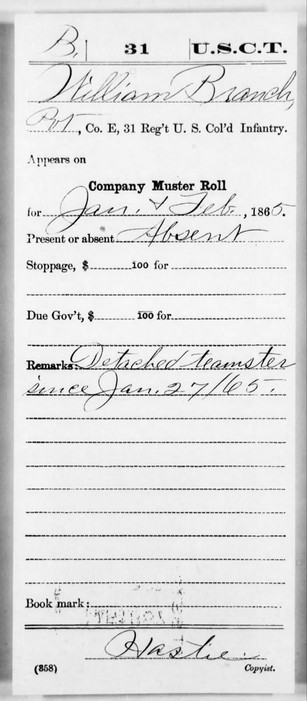 B. | 31 | U.S.C.T.
William Branch,
Pvt., Co. E, 31 Reg't U. S. Col'd Infantry.
Appears on
Company Muster Roll
for Jan. & Feb., 1865.
Present or absent Absent
Stoppage, $ 100 for
Due Gov't, $ 100 for
Remarks: Detached teamster
since Jan. 27/65.
Book mark:
Hastie
(358) Copyist.